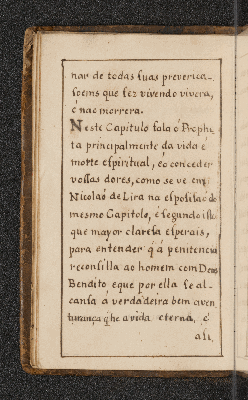 nar de todas suas preverica-
soems que fez vivendo vivera,
é nao morrera.
Neste Capitulo fala o Prophe
ta principalmente da vida é
morte espiritual, e o conceder
vossas dores, como se ve em
Nicolao de Lira na esposisaõ do
mesmo Capitolo, é segundo isto
que mayor claresa esperais,
para entender q̃ a penitencia
reconsilla ao homem com Deus
Bendito, e que por ella se al-
cansa a verdadeira bem aven
turança q̃ he a vida eterna, é
asi,